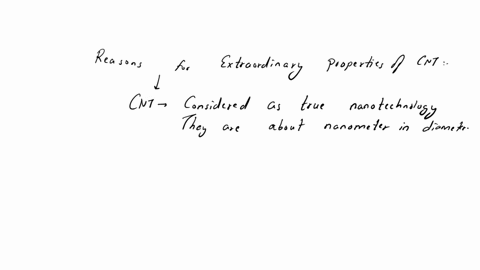 Reasons for Extraordinary properties of CNT:-
↓
CNT → Considered as true nanotechnology
They are about nanometer in diameter.